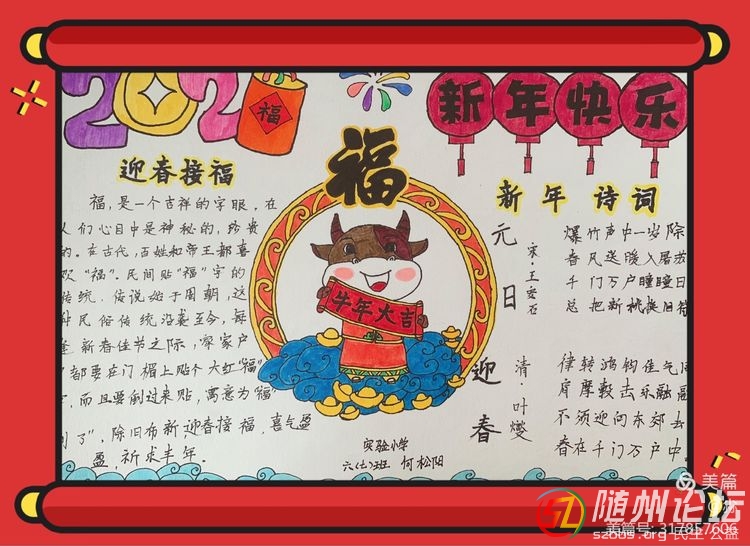 2021
福
新年快乐
福
迎春接福
福,是一个吉祥的字眼,在
人们心目中是神秘的,珍贵
的。在古代,百姓和帝王都喜
欢“福”。民间贴“福”字的
传统,传说始于周朝,这
种民俗传统沿袭至今,每
逢新春佳节之际,家家户
户都要在门楣上贴个大红“福”
字,而且要倒过来贴,寓意为“福
到了”,除旧布新,迎春接福,喜气盈
盈,祈求丰年。
牛年大吉
实验小学
六(七)班 何松阳
新年诗词
元日
宋·王安石
爆竹声中一岁除
春风送暖入屠苏
千门万户曈曈日
总把新桃换旧符
迎春
清·叶燮
律转鸿钧佳气同
肩摩毂击乐融融
不须迎向东郊去
春在千门万户中
美篇
随州论坛
美篇号:317857606
szbbs.org 民生 公益